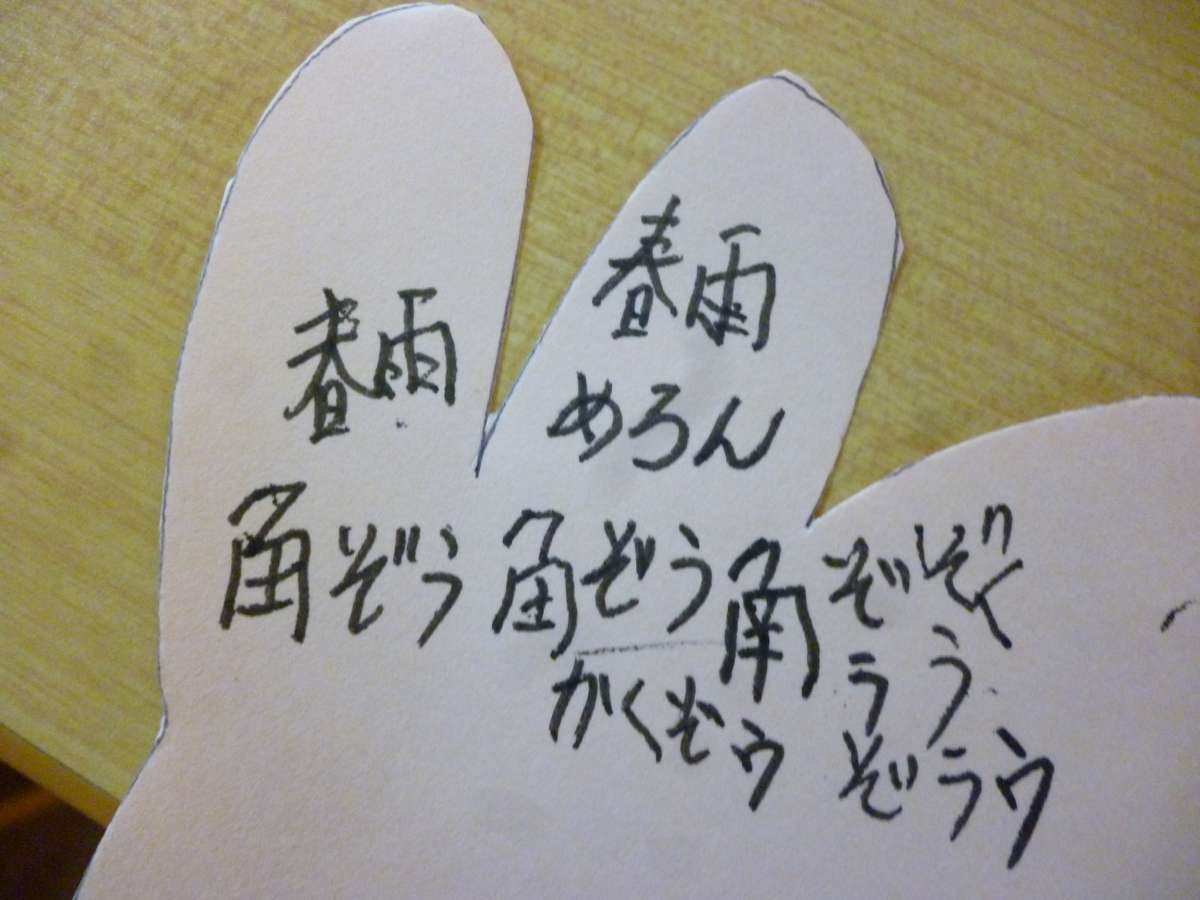 春雨
春雨
めろん
角ぞう 角ぞう 角ぞぞく
うう
かくぞウ
ぞうウ